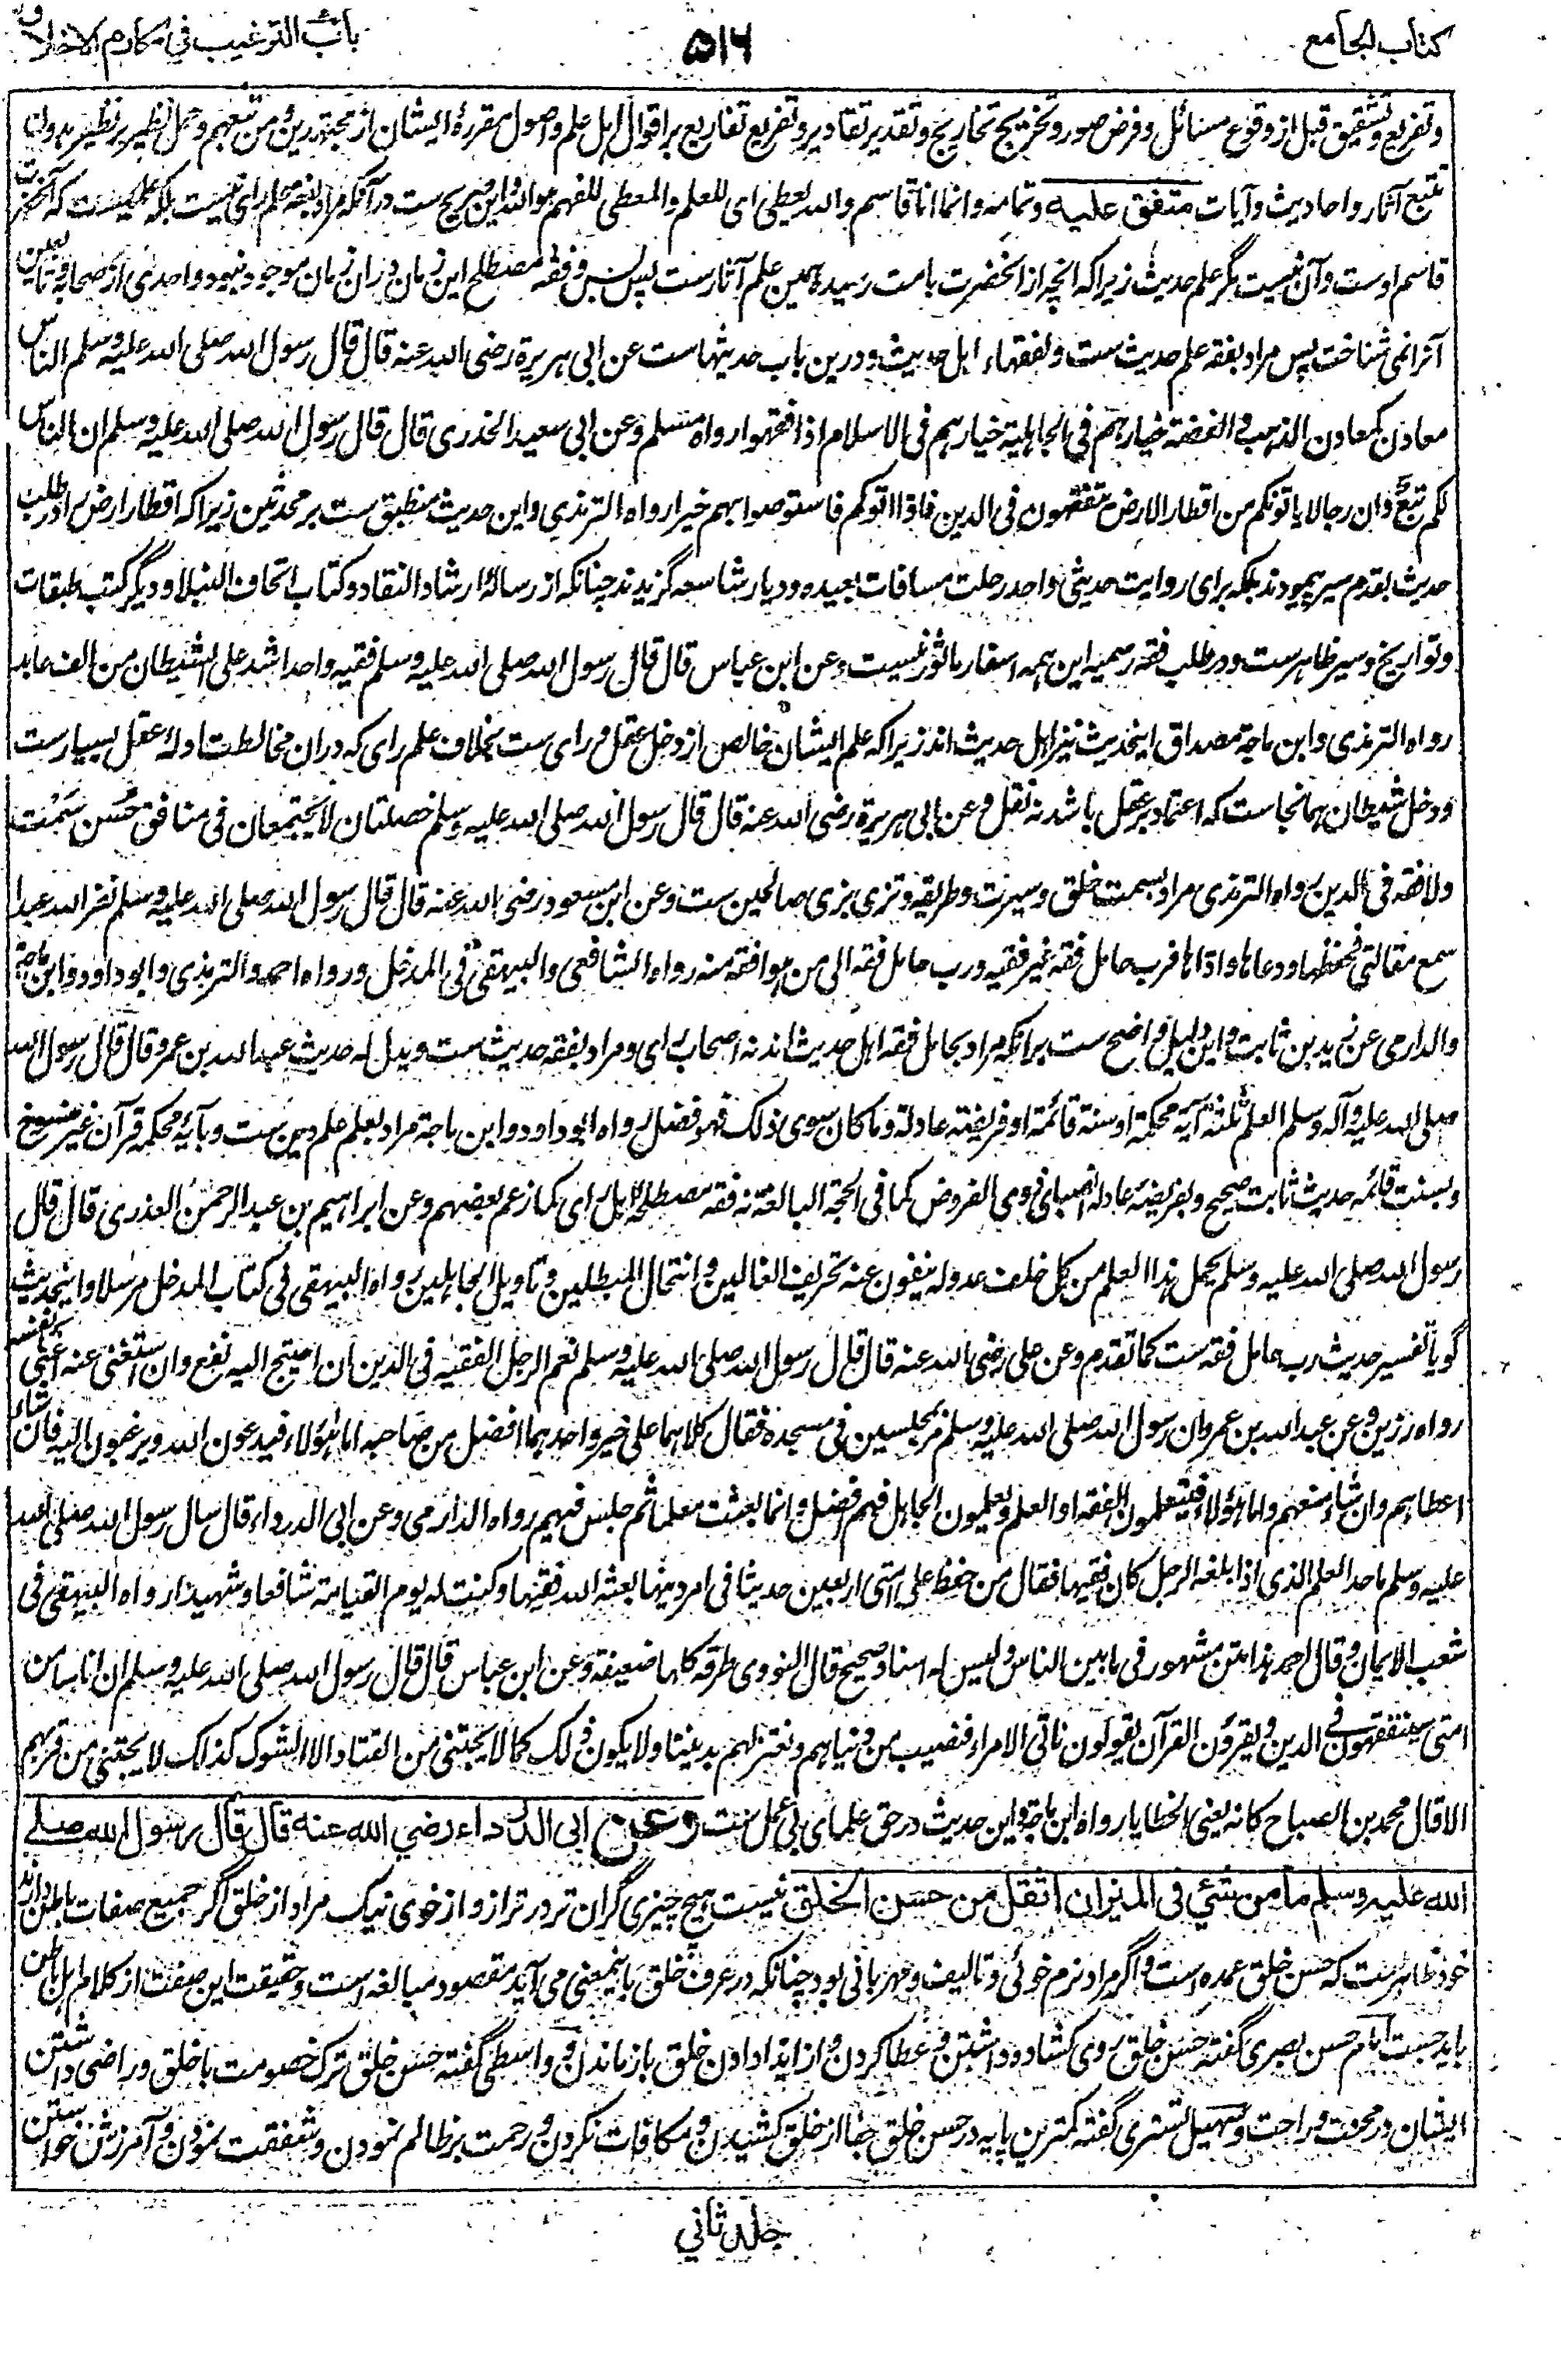 كتاب الجامع
۵۱۶
باب الترغيب في مكارم الاخلاق
وتفریع وتشقیق قبل از وقوع مسائل وفرض صور وتخریج تخاریج وتقدیر تقادیر وتفریع تفاریع بر اقوال اہل علم واصول مقررۂ ایشان از مجتہدین ومن تبعہم وحمل نظیر بر نظیر بدون
تتبع آثار واحادیث وآیات متفق علیه وتمامہ وانما انا قاسم واللہ یعطی ای للعلم والمعطی للفہم ہو اللہ واین صریح ست در آنکہ مراد بفقہ علم رای نیست بلکہ علمیست کہ آنحضرت
قاسم اوست وآن نیست مگر علم حدیث زیرا کہ انچہ از آنحضرت بامت رسیدہ ہمین علم آثار ست پس بس وفقہ مصطلح این زمان دران زمان موجود نبود واحدی از صحابہ وتابعین
آنرا نمی شناخت پس مراد بفقہ علم حدیث ست وبفقہاء اہل حدیث ودرین باب حدیثہاست عن ابی ہریرة رضی اللہ عنہ قال قال رسول اللہ صلی اللہ علیہ وسلم الناس
معادن کمعادن الذہب والفضة خیارہم فی الجاہلیة خیارہم فی الاسلام اذا فقہوا رواہ مسلم وعن ابی سعید الخدری قال قال رسول اللہ صلی اللہ علیہ وسلم ان الناس
لکم تبع وان رجالا یاتونکم من اقطار الارض یتفقہون فی الدین فاذا اتوکم فاستوصوا بہم خیرا رواہ الترمذی واین حدیث منطبق ست بر محدثین زیرا کہ اقطار ارض را در طلب
حدیث بقدم سیر پیمودند بلکہ برای روایت حدیثی واحد رحلت مسافات بعیدہ ودیار شاسعہ گزیدند چنانکہ از رسالۂ ارشاد النقاد وکتاب اتحاف النبلا ودیگر کتب طبقات
وتواریخ وسیر ظاہر ست ودر طلب فقہ رسمیہ این ہمہ اسفار ماثور نیست وعن ابن عباس قال قال رسول اللہ صلی اللہ علیہ وسلم فقیہ واحد اشد علی الشیطان من الف عابد
رواہ الترمذی وابن ماجة مصداق اینحدیث نیز اہل حدیث اند زیرا کہ علم ایشان خالص از دخل عقل ورای ست بخلاف علم رای کہ دران مخالطت ادلۂ عقل بسیار ست
ودخل شیطان ہمانجاست کہ اعتماد بر عقل باشد نہ نقل وعن ابی ہریرة رضی اللہ عنہ قال قال رسول اللہ صلی اللہ علیہ وسلم خصلتان لا یجتمعان فی منافق حُسن سَمْت
ولا فقہ فی الدین رواہ الترمذی مراد بسمت خلق وسیرت وطریقہ وتزی بزی صالحین ست وعن ابن مسعود رضی اللہ عنہ قال قال رسول اللہ صلی اللہ علیہ وسلم نضر اللہ عبدا
سمع مقالتی فحفظہا ووعاہا واداہا فرب حامل فقہ غیر فقیہ ورب حامل فقہ الی من ہو افقہ منہ رواہ الشافعی والبیہقی فی المدخل ورواہ احمد والترمذی وابو داود وابن ماجة
والدارمی عن زید بن ثابت واین دلیل واضح ست بر انکہ مراد بحامل فقہ اہل حدیث اند نہ اصحاب رای ومراد بفقہ حدیث ست ویدل لہ حدیث عبد اللہ بن عمرو قال قال رسول اللہ
صلی اللہ علیہ وآلہ وسلم العلم ثلثة آیة محکمة او سنة قائمة او فریضة عادلة وما کان سوی ذلک فہو فضل رواہ ابو داود وابن ماجة مراد بعلم علم دین ست وبآیۂ محکمہ قرآن غیر منسوخ
وبسنت قائمہ حدیث ثابت صحیح وبفریضۂ عادلہ انصبای ذوی الفروض کما فی الحجة البالغة نہ فقہ مصطلح اہل رای کما زعم بعضہم وعن ابراہیم بن عبد الرحمن العذری قال قال
رسول اللہ صلی اللہ علیہ وسلم یحمل ہذا العلم من کل خلف عدولہ ینفون عنہ تحریف الغالین وانتحال المبطلین وتاویل الجاہلین رواہ البیہقی فی کتاب المدخل مرسلا واینحدیث
گویا تفسیر حدیث رب حامل فقہ ست کما تقدم وعن علی رضی اللہ عنہ قال قال رسول اللہ صلی اللہ علیہ وسلم نعم الرجل الفقیہ فی الدین ان احتیج الیہ نفع وان استغنی عنہ اغنی نفسہ
رواہ رزین وعن عبد اللہ بن عمرو ان رسول اللہ صلی اللہ علیہ وسلم مر بمجلسین فی مسجدہ فقال کلاہما علی خیر واحدہما افضل من صاحبہ اما ہؤلاء فیدعون اللہ ویرغبون الیہ فان شاء
اعطاہم وان شاء منعہم واما ہؤلاء فیتعلمون الفقہ او العلم ویعلمون الجاہل فہم افضل وانما بعثت معلما ثم جلس فیہم رواہ الدارمی وعن ابی الدرداء قال سال رسول اللہ صلی اللہ
علیہ وسلم ما حد العلم الذی اذا بلغہ الرجل کان فقیہا فقال من حفظ علی امتی اربعین حدیثا فی امر دینہا بعثہ اللہ فقیہا وکنت لہ یوم القیامة شافعا وشہیدا رواہ البیہقی فی
شعب الایمان وقال احمد ہذا متن مشہور فی ما بین الناس ولیس لہ اسناد صحیح قال النووی طرقہ کلہا ضعیفة وعن ابن عباس قال قال رسول اللہ صلی اللہ علیہ وسلم ان اناسا من
امتی سیتفقہون فی الدین ویقرؤن القرآن یقولون ناتی الامراء فنصیب من دنیاہم ونعتزلہم بدیننا ولا یکون ذلک کما لا یجتنی من القتاد الا الشوک کذلک لا یجتنی من قربہم
الا قال محمد بن الصباح کانہ یعنی الخطایا رواہ ابن ماجة واین حدیث در حق علمای بی عمل ست وعن ابی الدرداء رضي الله عنه قال قال رسول الله صلے
الله عليه وسلم ما من شئي في الميزان اثقل من حسن الخلق نیست ہیچ چیزی گران تر در ترازو از خوی نیک مراد از خلق اگر جمیع صفات باطن دارند
خود ظاہر ست کہ حسن خلق عمدہ است واگر مراد نرم خوئی وتالیف ومہربانی بود چنانکہ در عرف خلق باینمعنی می آید مقصود مبالغہ است وحقیقت این صفت از کلام اہل باطن
باید جست امام حسن بصری گفتہ حسن خلق روی کشادہ داشتن وعطا کردن واز ایذا دادن خلق باز ماندن وواسطی گفتہ حسن خلق ترک خصومت با خلق وراضی داشتن
ایشان در محنت وراحت وسہیل تستری گفتہ کمترین پایہ در حسن خلق جفا از خلق کشیدن ومکافات نکردن ورحمت بر ظالم نمودن وشفقت نمودن وآمرزش خواستن
جلد ثاني